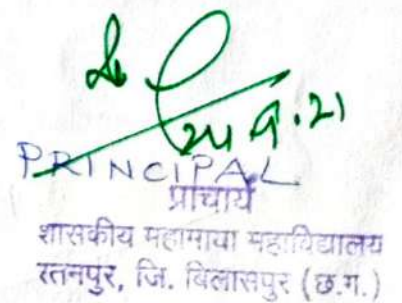 9.21
PRINCIPAL
प्राचार्य
शासकीय महामाया महाविद्यालय
रतनपुर, जि. बिलासपुर (छ.ग.)